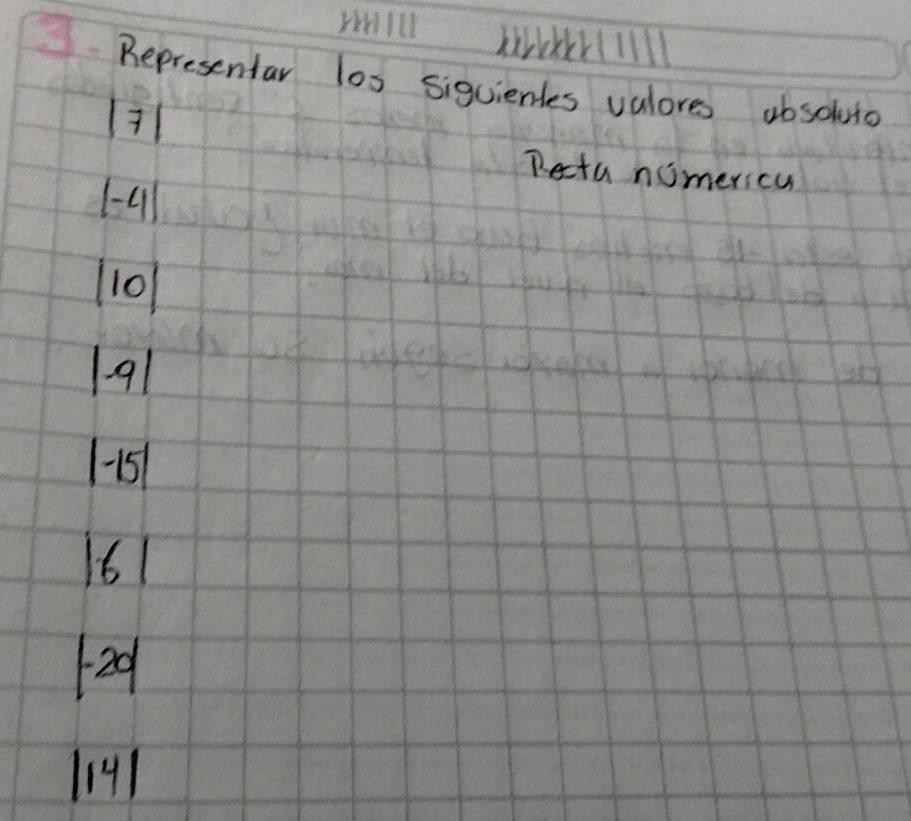 3. Representar los siguientes valores absoluto
|7|
Recta númerica
|-4|
|10|
|-9|
|-15|
|-6|
|-20|
|14|